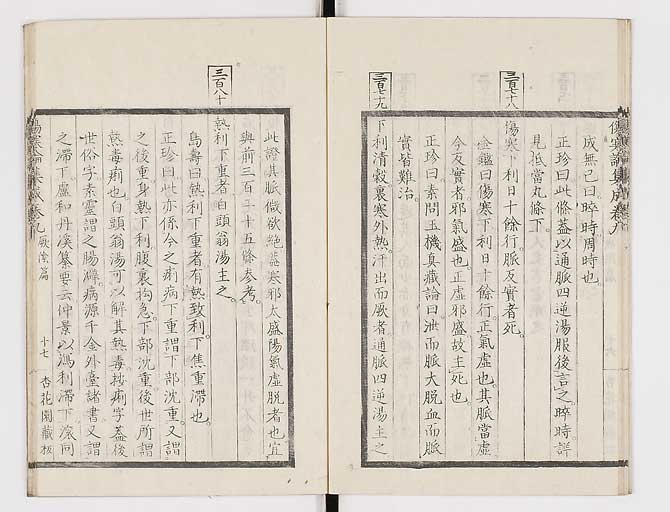 成無已曰晬時周時也
正珍曰此條蓋以通脈四逆湯服後言之晬時詳
見抵當丸條下
三百七十八
傷寒下利日十餘行脈反實者死
金鑑曰傷寒下利日十餘行正氣虛也其脈當虛
今反實者邪氣盛也正虛邪盛故主死也
正珍曰素問玉機真藏論曰泄而脈大脫血而脈
實皆難治
三百七十九
下利清穀裏寒外熱汗出而厥者通脈四逆湯主之
此證其脈微欲絕蓋寒邪太盛陽氣虛脫者也宜
與前三百二十五條參考
三百八十
熱利下重者白頭翁湯主之
烏壽曰熱利下重者有熱致利下焦重滯也
正珍曰此亦係今之痢病下重謂下部沈重又謂
之後重身熱下利腹裏拘急下部沈重後世所謂
熱毒痢也白頭翁湯可以解其熱毒按痢字蓋後
世俗字素靈謂之腸澼病源千金外臺諸書又謂
之滯下虞和丹溪纂要云仲景以瀉利滯下滾同
傷寒論集成卷九 厥陰篇 十七 杏花園藏板